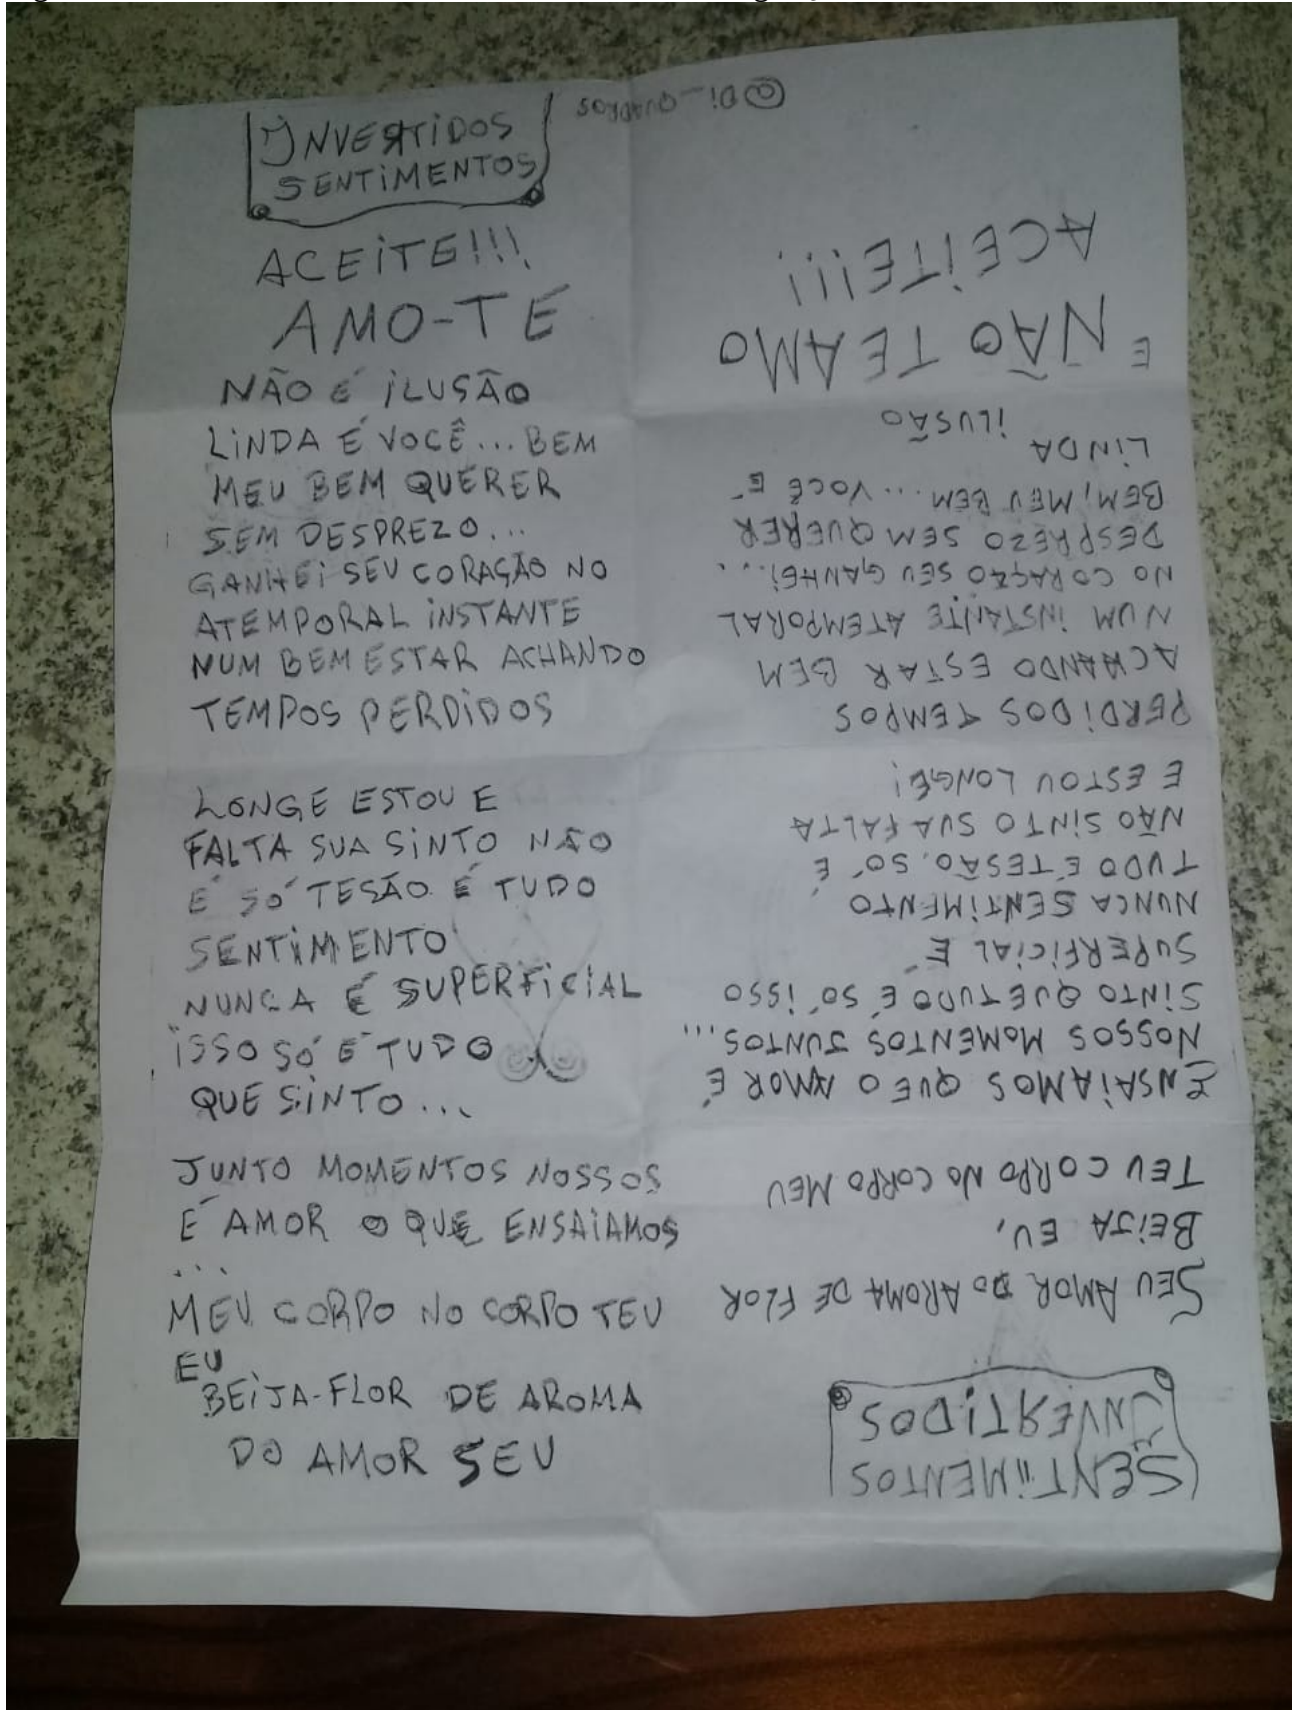 INVERTIDOS
SENTIMENTOS
ACEITE!!!
AMO-TE
NÃO É ILUSÃO
LINDA É VOCÊ... BEM
MEU BEM QUERER
SEM DESPREZO...
GANHEI SEU CORAÇÃO NO
ATEMPORAL INSTANTE
NUM BEM ESTAR ACHANDO
TEMPOS PERDIDOS
LONGE ESTOU E
FALTA SUA SINTO NÃO
É SÓ TESÃO É TUDO
SENTIMENTO
NUNCA É SUPERFICIAL
ISSO SÓ É TUDO
QUE SINTO...
JUNTO MOMENTOS NOSSOS
É AMOR O QUE ENSAIAMOS
...
MEU CORPO NO CORPO TEU
EU
BEIJA-FLOR DE AROMA
DO AMOR SEU
SENTIMENTOS
INVERTIDOS
SEU AMOR DO AROMA DE FLOR
BEIJA EU,
TEU CORPO NO CORPO MEU
ENSAIAMOS QUE O AMOR É
NOSSOS MOMENTOS JUNTOS...
SINTO QUE TUDO É SÓ ISSO
SUPERFICIAL É
NUNCA SENTIMENTO
TUDO É TESÃO, SÓ É
NÃO SINTO SUA FALTA
E ESTOU LONGE!
PERDIDOS TEMPOS
ACHANDO ESTAR BEM
NUM INSTANTE ATEMPORAL
NO CORAÇÃO SEU GANHEI...
DESPREZO SEM QUERER
BEM, MEU BEM... VOCÊ É
LINDA
ILUSÃO
E NÃO TE AMO
ACEITE!!!
@DI_QUADROS